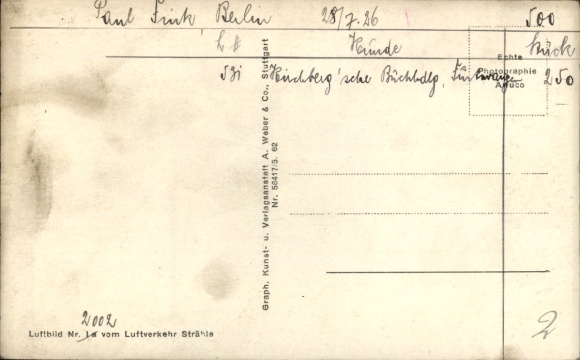 Paul Fink, Berlin 28/7.26 500
L # Kunde Stück
531 Kirchberg'sche Buchhdlg, Furtwangen 250
Echte
Photographie
Amuco
Graph. Kunst- u. Verlagsanstalt A. Weber & Co., Stuttgart
Nr. 56417/5. 62
2002
Luftbild Nr. 1a vom Luftverkehr Strähle
2